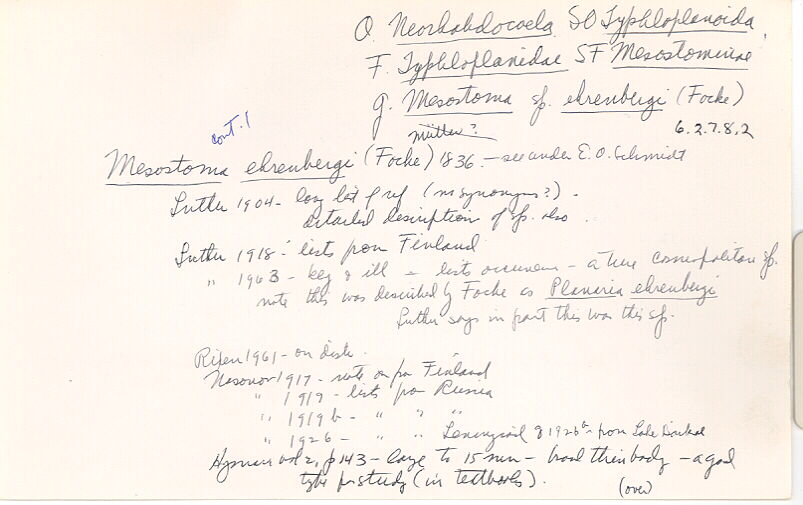 O. Neorhabdocoela SO Typhloplanoida,
F. Typhloplanidae SF Mesostominae
g. Mesostoma sp. ehrenbergi (Focke)
Müller? 6.2.7.8.2
cont. 1
Mesostoma ehrenbergi (Focke) 1836 - see under E.O. Schmidt
Luther 1904 - long list of ref (no synonyms?) -
detailed description of sp. also
Luther 1918: lists from Finland
" 1963 - key & ill - lists occurrence - a true cosmopolitan sp.
note this was described by Focke as Planaria ehrenbergi
Luther says in part this was this sp.
Rixen 1961 - on distr.
Nasonov 1917 - note on from Finland
" 1919 - lists from Russia
" 1919b - " " "
" 1926 - " " Leningrad & 1926b from Lake
Hyman vol 2, p 143 - large to 15 mm - broad thin body - a good
type for study (in textbooks).
(over)